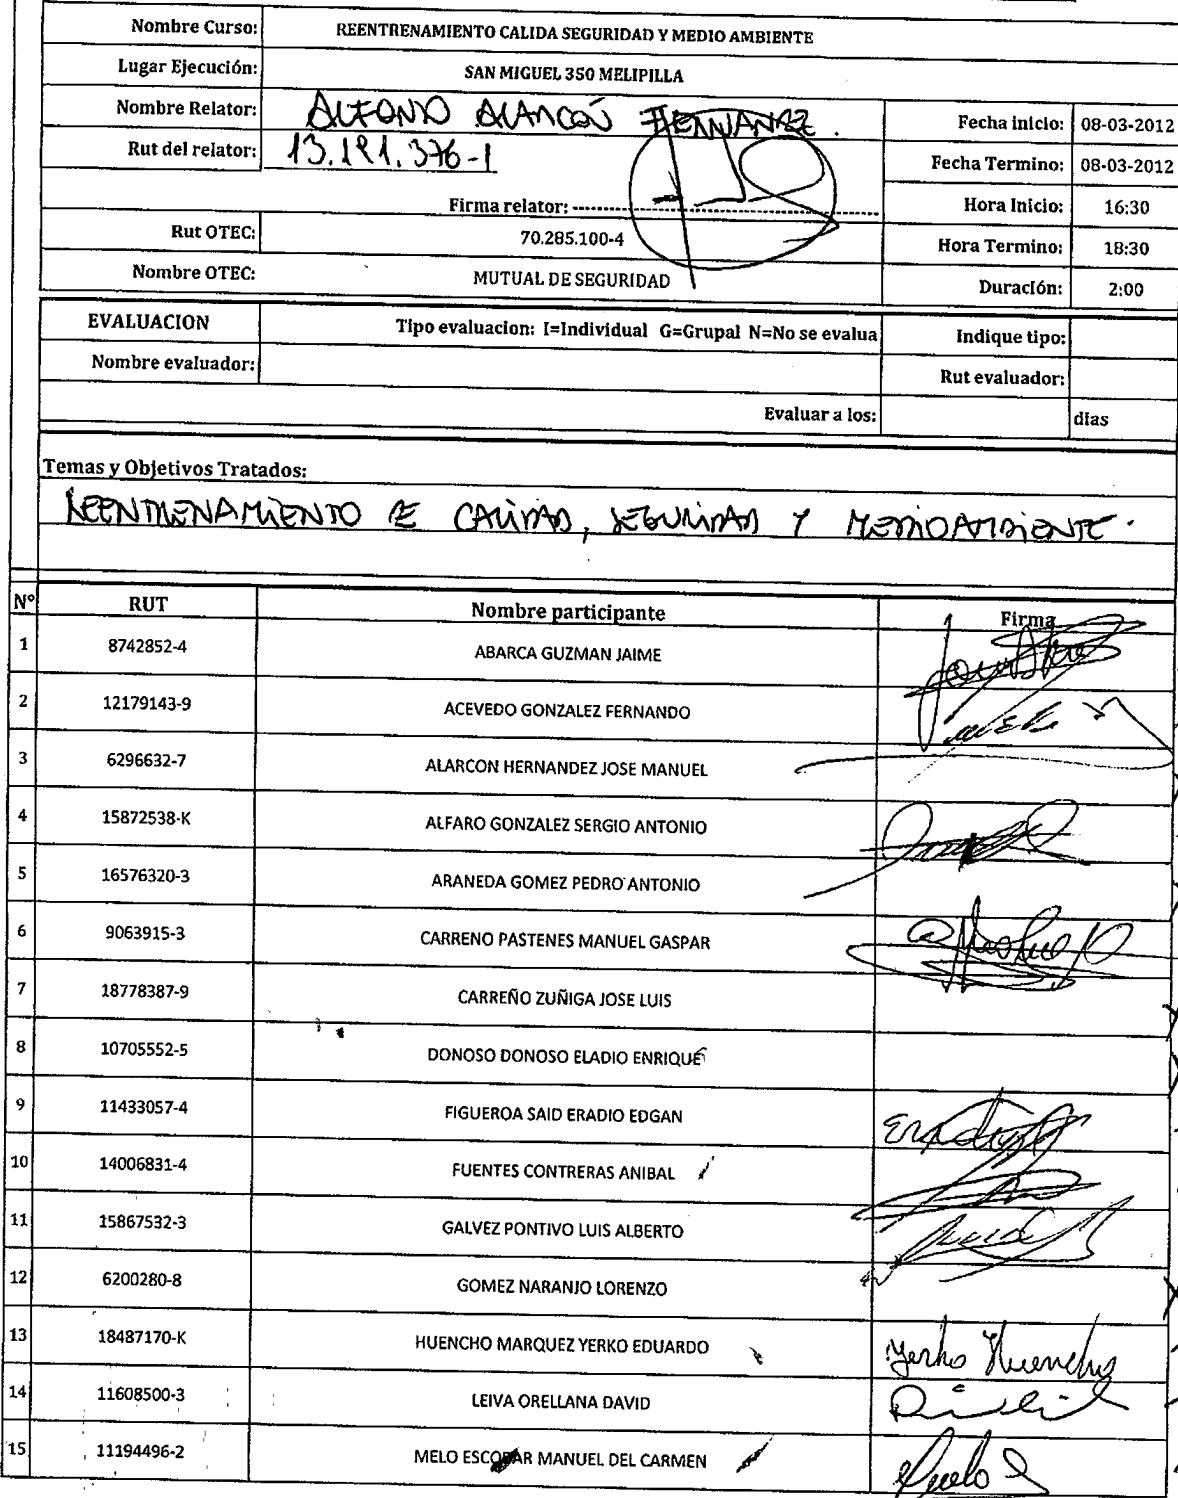 Nombre Curso: REENTRENAMIENTO CALIDA SEGURIDAD Y MEDIO AMBIENTE
Lugar Ejecución: SAN MIGUEL 350 MELIPILLA
Nombre Relator: ALFONSO ALARCÓN HERNANDEZ. Fecha inicio: 08-03-2012
Rut del relator: 13.191.376-1 Fecha Termino: 08-03-2012
Firma relator: Hora Inicio: 16:30
Rut OTEC: 70.285.100-4 Hora Termino: 18:30
Nombre OTEC: MUTUAL DE SEGURIDAD Duración: 2:00
EVALUACION Tipo evaluacion: I=Individual G=Grupal N=No se evalua Indique tipo:
Nombre evaluador: Rut evaluador:
Evaluar a los: dias
Temas y Objetivos Tratados:
REENTRENAMIENTO DE CALIDAD, SEGURIDAD Y MEDIOAMBIENTE.
Nº RUT Nombre participante Firma
1 8742852-4 ABARCA GUZMAN JAIME
2 12179143-9 ACEVEDO GONZALEZ FERNANDO
3 6296632-7 ALARCON HERNANDEZ JOSE MANUEL
4 15872538-K ALFARO GONZALEZ SERGIO ANTONIO
5 16576320-3 ARANEDA GOMEZ PEDRO ANTONIO
6 9063915-3 CARRENO PASTENES MANUEL GASPAR
7 18778387-9 CARREÑO ZUÑIGA JOSE LUIS
8 10705552-5 DONOSO DONOSO ELADIO ENRIQUE
9 11433057-4 FIGUEROA SAID ERADIO EDGAN
10 14006831-4 FUENTES CONTRERAS ANIBAL
11 15867532-3 GALVEZ PONTIVO LUIS ALBERTO
12 6200280-8 GOMEZ NARANJO LORENZO
13 18487170-K HUENCHO MARQUEZ YERKO EDUARDO Yerko Huencho
14 11608500-3 LEIVA ORELLANA DAVID
15 11194496-2 MELO ESCOBAR MANUEL DEL CARMEN